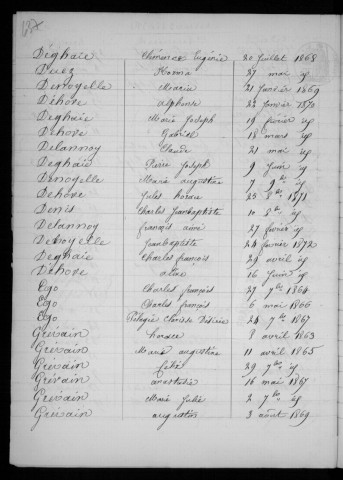 Déghaie Clémence Eugénie 20 Juillet 1868
Duez Rosina 27 mai id
Denoyelle Maria 21 Janvier 1869
Dehove alphonse 22 Janvier 1870
Deghaie Marie Joseph 19 février id
Dehove Gabriel 18 mars id
Delannoy Claude 21 mai id
Deghaie Pierre Joseph 9 Juin id
Denoyelle Marie augustine 7 9bre id
Dehove Jules horace 25 8bre 1871
Denis Charles Jeanbaptiste 10 8bre id
Delannoy françois aimé 27 février id
Denoyelle Jeanbaptiste 24 février 1872
Deghaie Charles françois 29 avril id
Dehove aline 16 Juin id
Ego Charles françois 27 7bre 1864
Ego Charles françois 6 mai 1866
Ego Pélagie Clarisse Désirée 24 7bre 1867
Grévain horace 8 avril 1863
Grévain Marie augustine 11 avril 1865
Grévain félix 29 7bre id
Grévain anastasie 16 mai 1867
Grévain Marie Julie 2 7bre id
Grévain augustin 3 août 1869